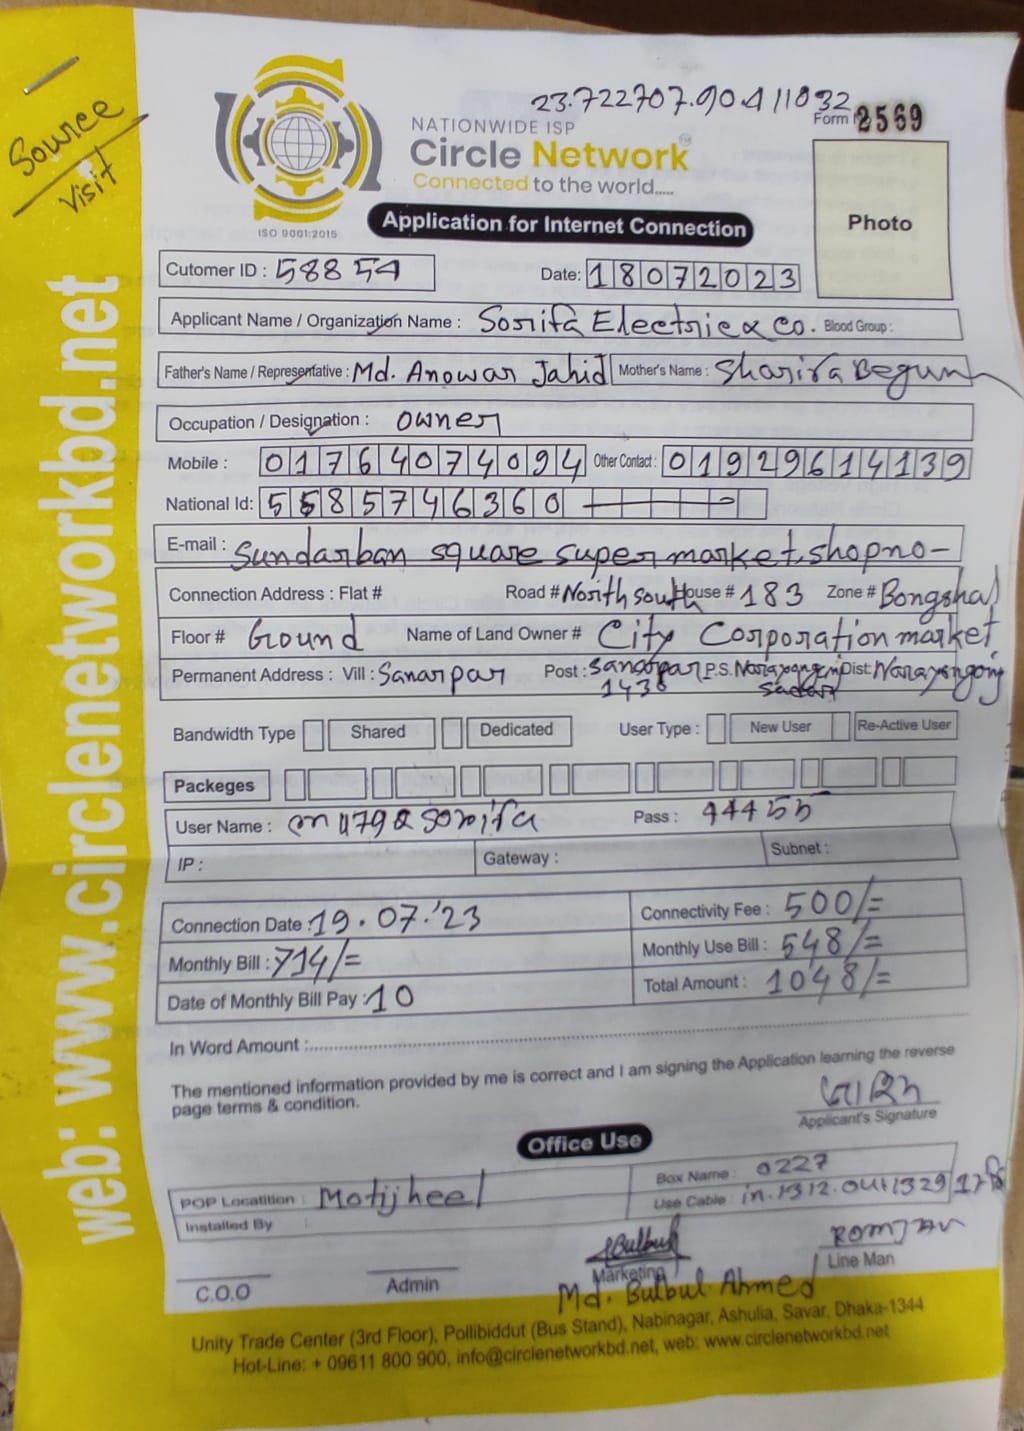 Source
visit
23.722707.90411032
Form 2569
NATIONWIDE ISP
Circle Network
Connected to the world.....
ISO 9001:2015
Application for Internet Connection
Photo
Cutomer ID : 58854 Date: 18072023
Applicant Name / Organization Name : Sorifa Electric & Co. Blood Group :
Father's Name / Representative : Md. Anowar Jahid Mother's Name : Sharifa Begum
Occupation / Designation : owner
Mobile : 01764074094 Other Contact : 01929614139
National Id: 5585746360
E-mail : Sundarban square super market, shop no-
Connection Address : Flat # Road # North South House # 183 Zone # Bongshal
Floor # Ground Name of Land Owner # City Corporation market
Permanent Address : Vill : Sanarpar Post : Sanarpar P.S. Narayangonj Dist: Narayongonj
1438 Sadar
Bandwidth Type Shared Dedicated User Type : New User Re-Active User
Packeges
User Name : Pass : 44455
IP : Gateway : Subnet :
Connection Date : 19.07.'23 Connectivity Fee : 500/=
Monthly Bill : 714/= Monthly Use Bill : 548/=
Date of Monthly Bill Pay : 10 Total Amount : 1048/=
In Word Amount :
The mentioned information provided by me is correct and I am signing the Application learning the reverse
page terms & condition.
Applicant's Signature
Office Use
POP Locatition : Motijheel Box Name : 0227
Installed By : Use Cable : in.1312.out1329
Bulbul ROMJAN
C.O.O Admin Marketing Line Man
Md. Bulbul Ahmed
Unity Trade Center (3rd Floor), Pollibiddut (Bus Stand), Nabinagar, Ashulia, Savar, Dhaka-1344
Hot-Line: + 09611 800 900, info@circlenetworkbd.net, web: www.circlenetworkbd.net
web: www.circlenetworkbd.net